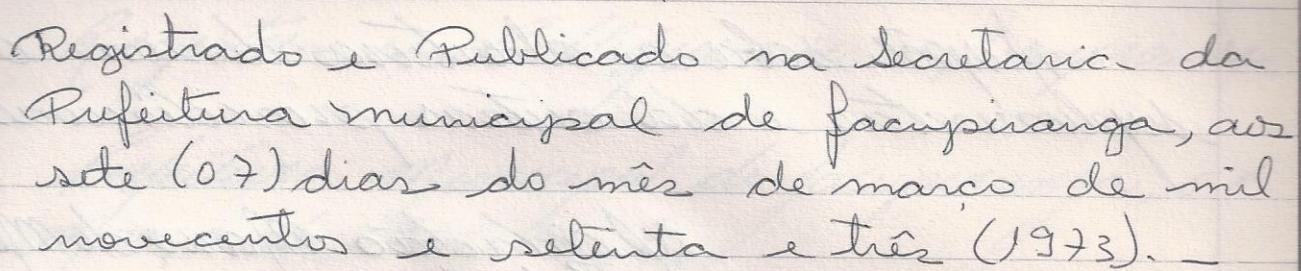 Registrado e Publicado na Secretaria da
Prefeitura municipal de Jacupiranga, aos
sete (07) dias do mês de março de mil
novecentos e setenta e três (1973). _